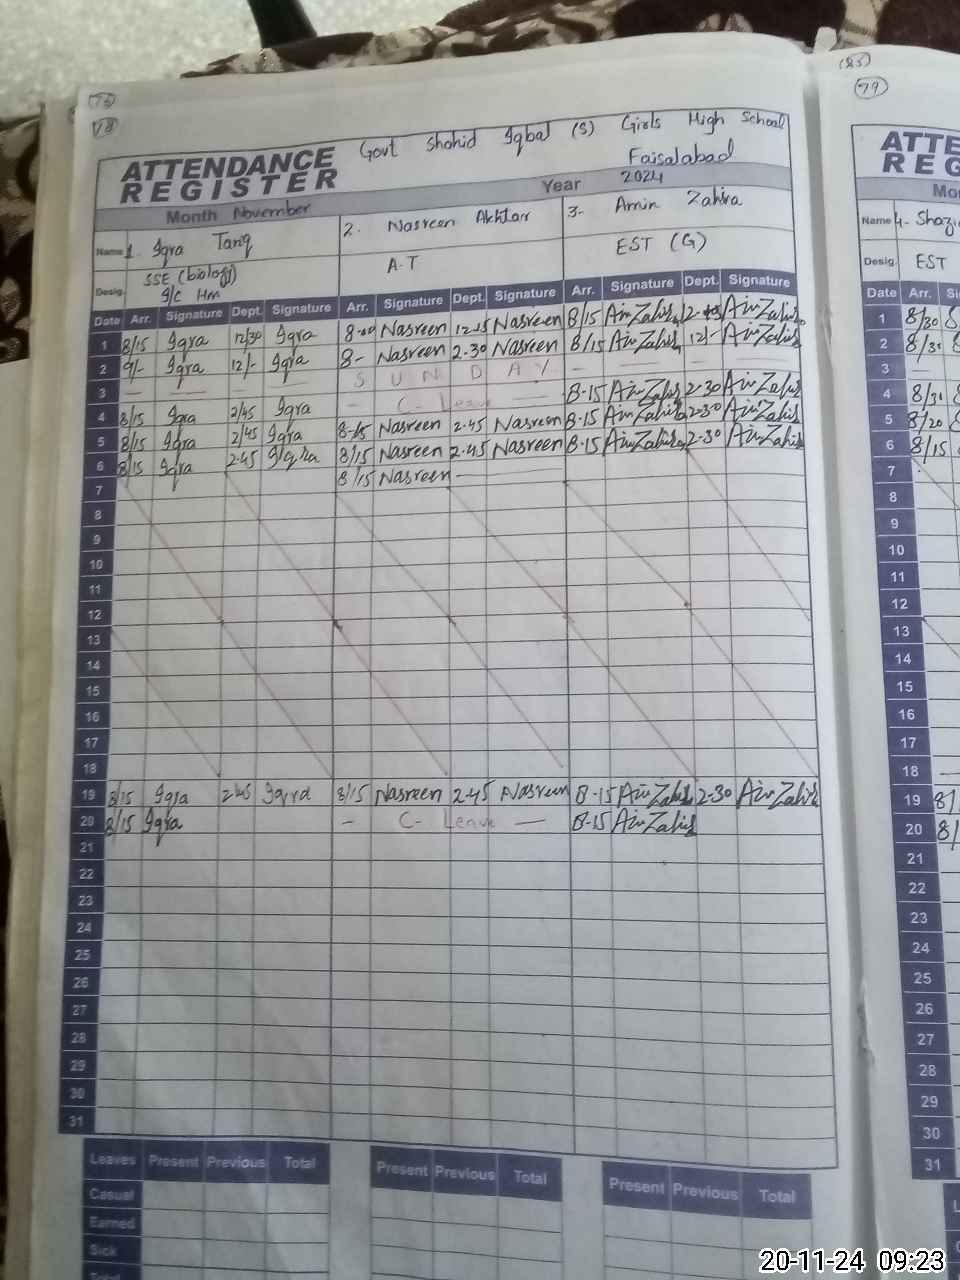 (85)
73
78
79
Govt Shahid Iqbal (S) Girls High School
Faisalabad
ATTENDANCE
REGISTER
Year 2024
Month November
Name 1. Iqra Tariq
2. Nasreen Akhtar
3- Amin Zahira
Desig. SSE (biology)
I/C Hm
A.T
EST (G)
Date Arr. Signature Dept. Signature Arr. Signature Dept. Signature Arr. Signature Dept. Signature
1 8/15 Iqra 12/30 Iqra 8-00 Nasreen 12-15 Nasreen 8/15
2 9/- Iqra 12/- Iqra 8- Nasreen 2.30 Nasreen 8/15 12/-
3 — — — — S U N D A Y
4 8/15 Iqra 2/45 Iqra - C- Leave — 8-15 2-30
5 8/15 Iqra 2/45 Iqra 8-15 Nasreen 2.45 Nasreen 8-15 2-30
6 8/15 Iqra 2-45 Iqra 8/15 Nasreen 2.45 Nasreen 8-15 2-30
7 8/15 Nasreen -
8
9
10
11
12
13
14
15
16
17
18
19 8/15 Iqra 2-45 Iqra 8/15 Nasreen 2-45 Nasreen 8-15 2-30
20 8/15 Iqra - C- Leave — 8-15
21
22
23
24
25
26
27
28
29
30
31
Leaves Present Previous Total Present Previous Total Present Previous Total
Casual
Earned
Sick
Total
ATTE
REG
Mo
Name 4-
Desig. EST
Date Arr. Si
1 8/30
2 8/31
3 —
4 8/31
5 8/20
6 8/15
7
8
9
10
11
12
13
14
15
16
17
18
19 8/
20 8/
21
22
23
24
25
26
27
28
29
30
31
20-11-24 09:23